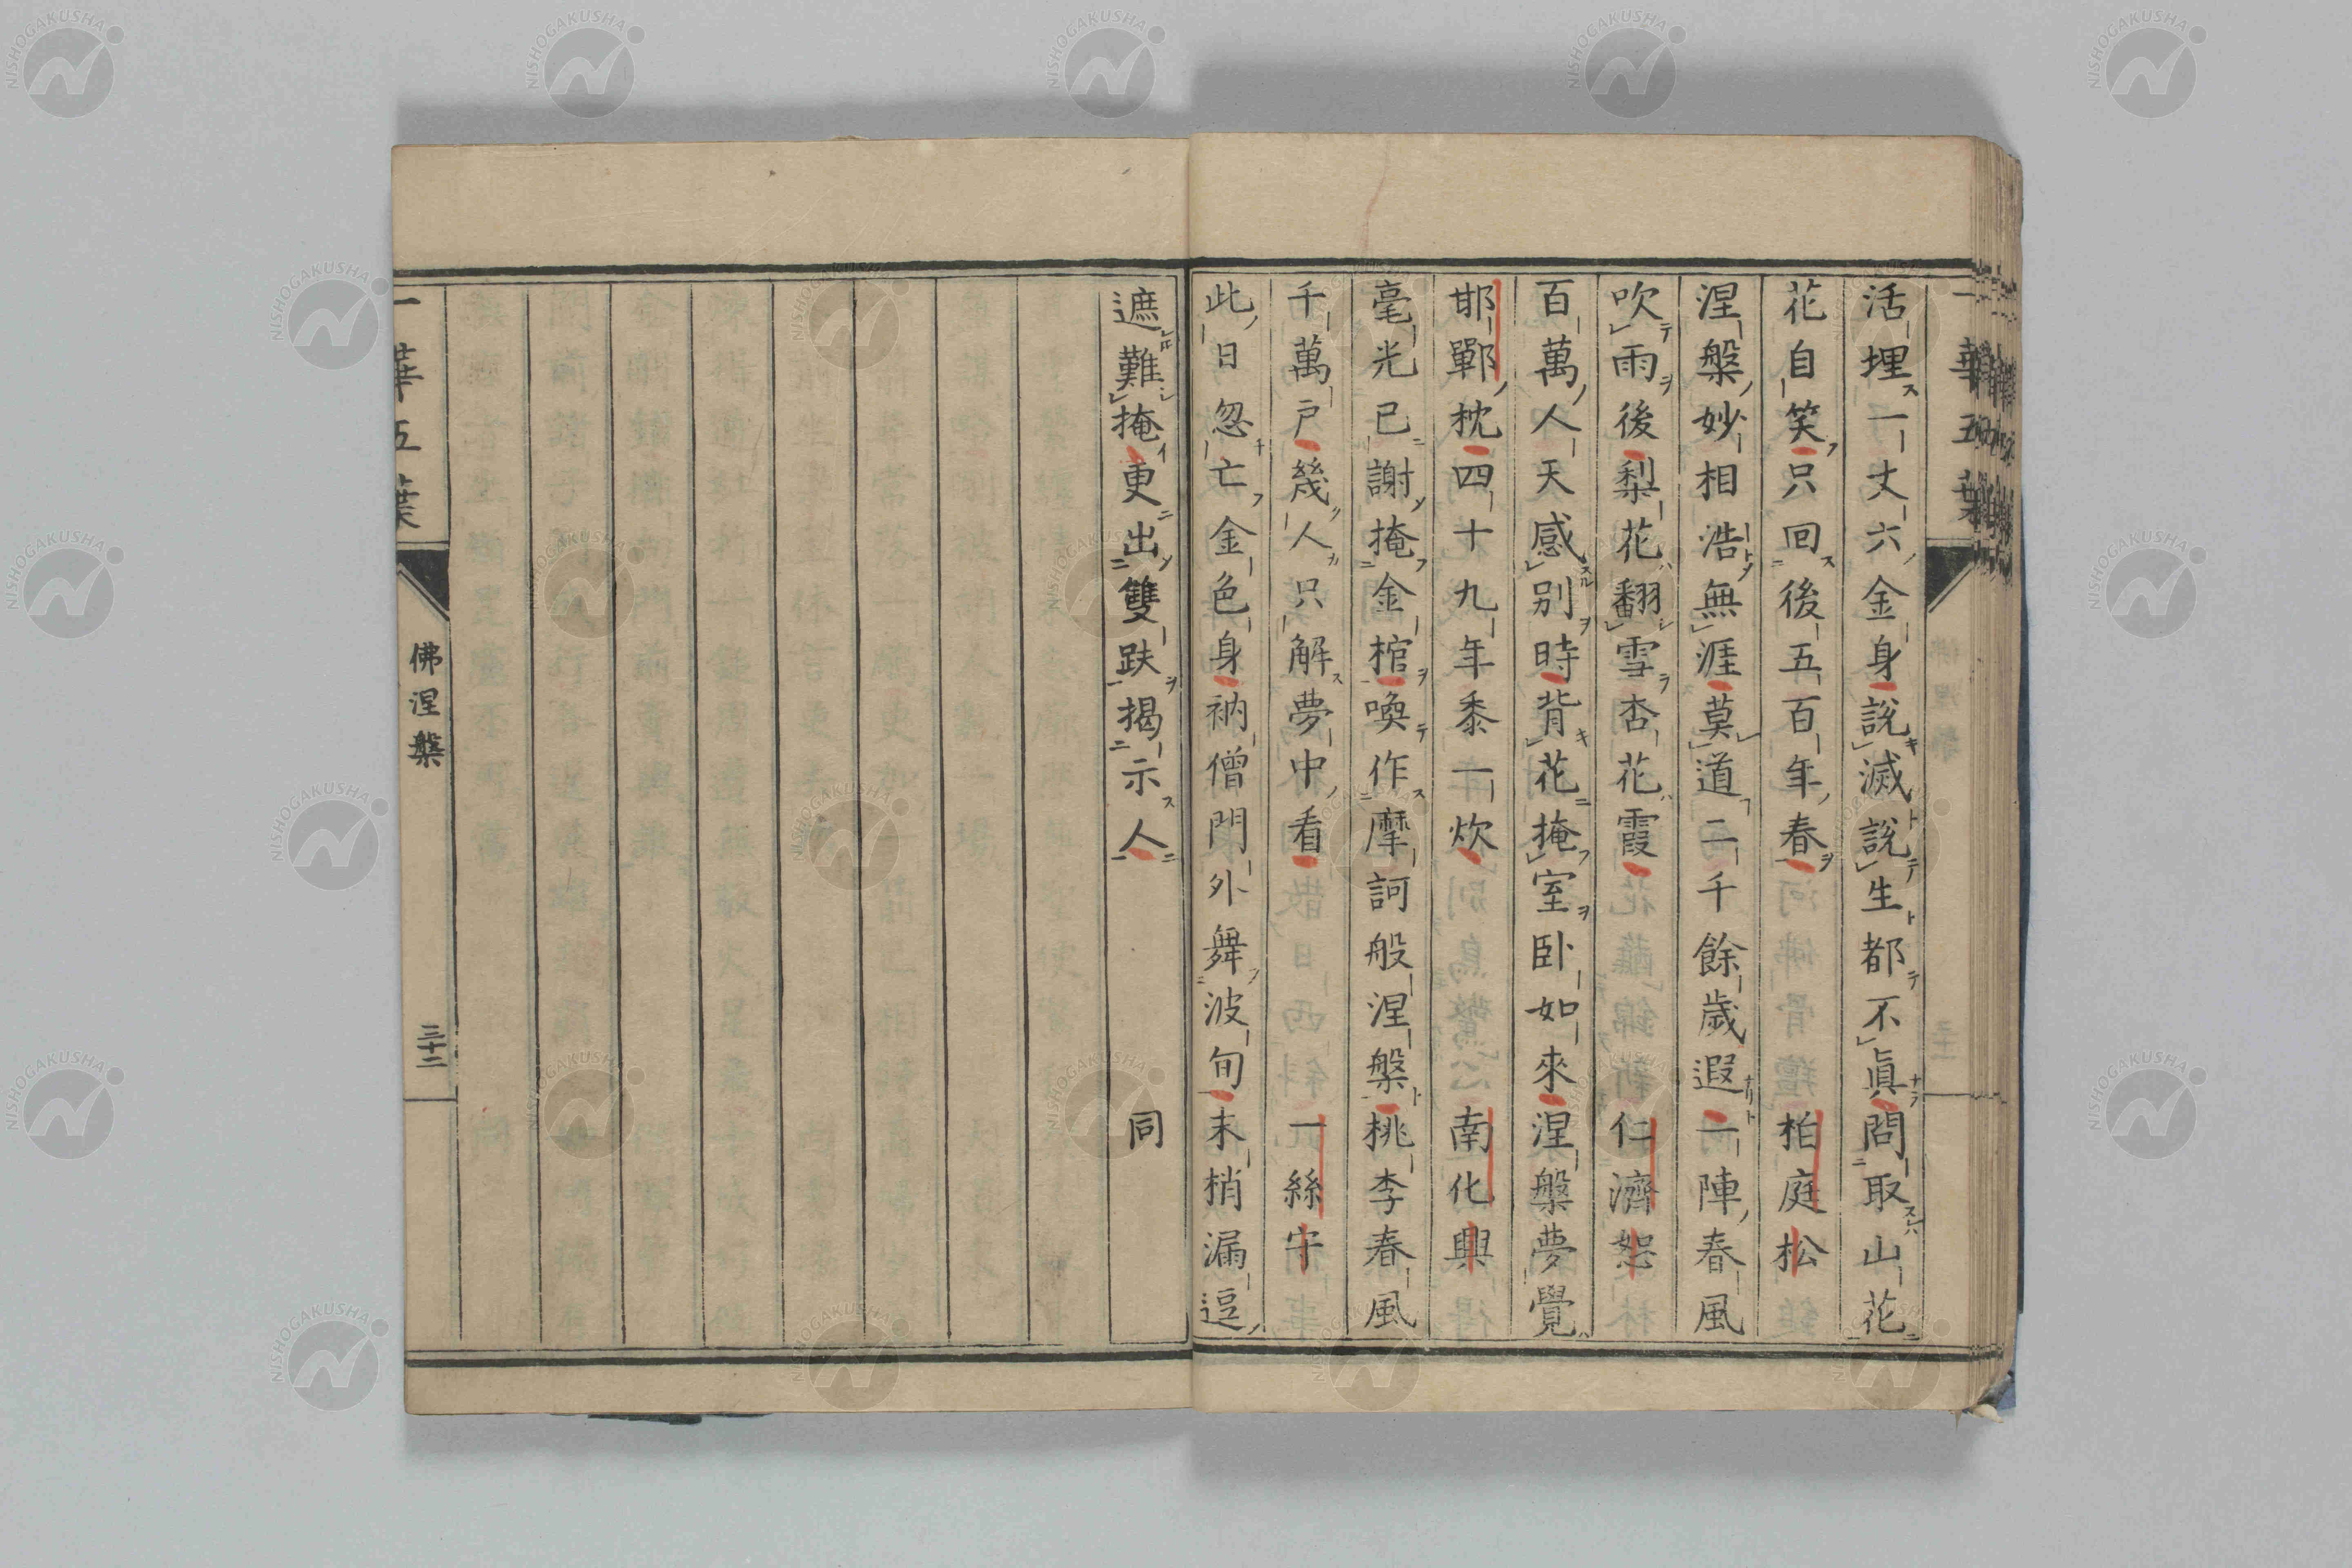 活埋一丈六金身說滅說生都不眞問取山花
花自笑只回後五百年春 柏庭松
涅槃妙相浩無涯莫道二千餘歲遐一陣春風
吹雨後梨花翻雪杏花霞 仁濟恕
百萬人天感別時背花掩室臥如來涅槃夢覺
邯鄲枕四十九年黍一炊 南化興
毫光已謝掩金棺喚作摩訶般涅槃桃李春風
千萬戶幾人只解夢中看 一絲守
此日忽亡金色身衲僧門外舞波旬末梢漏逗
遮難掩更出雙趺揭示人 同
一華五葉
佛涅槃
三十二